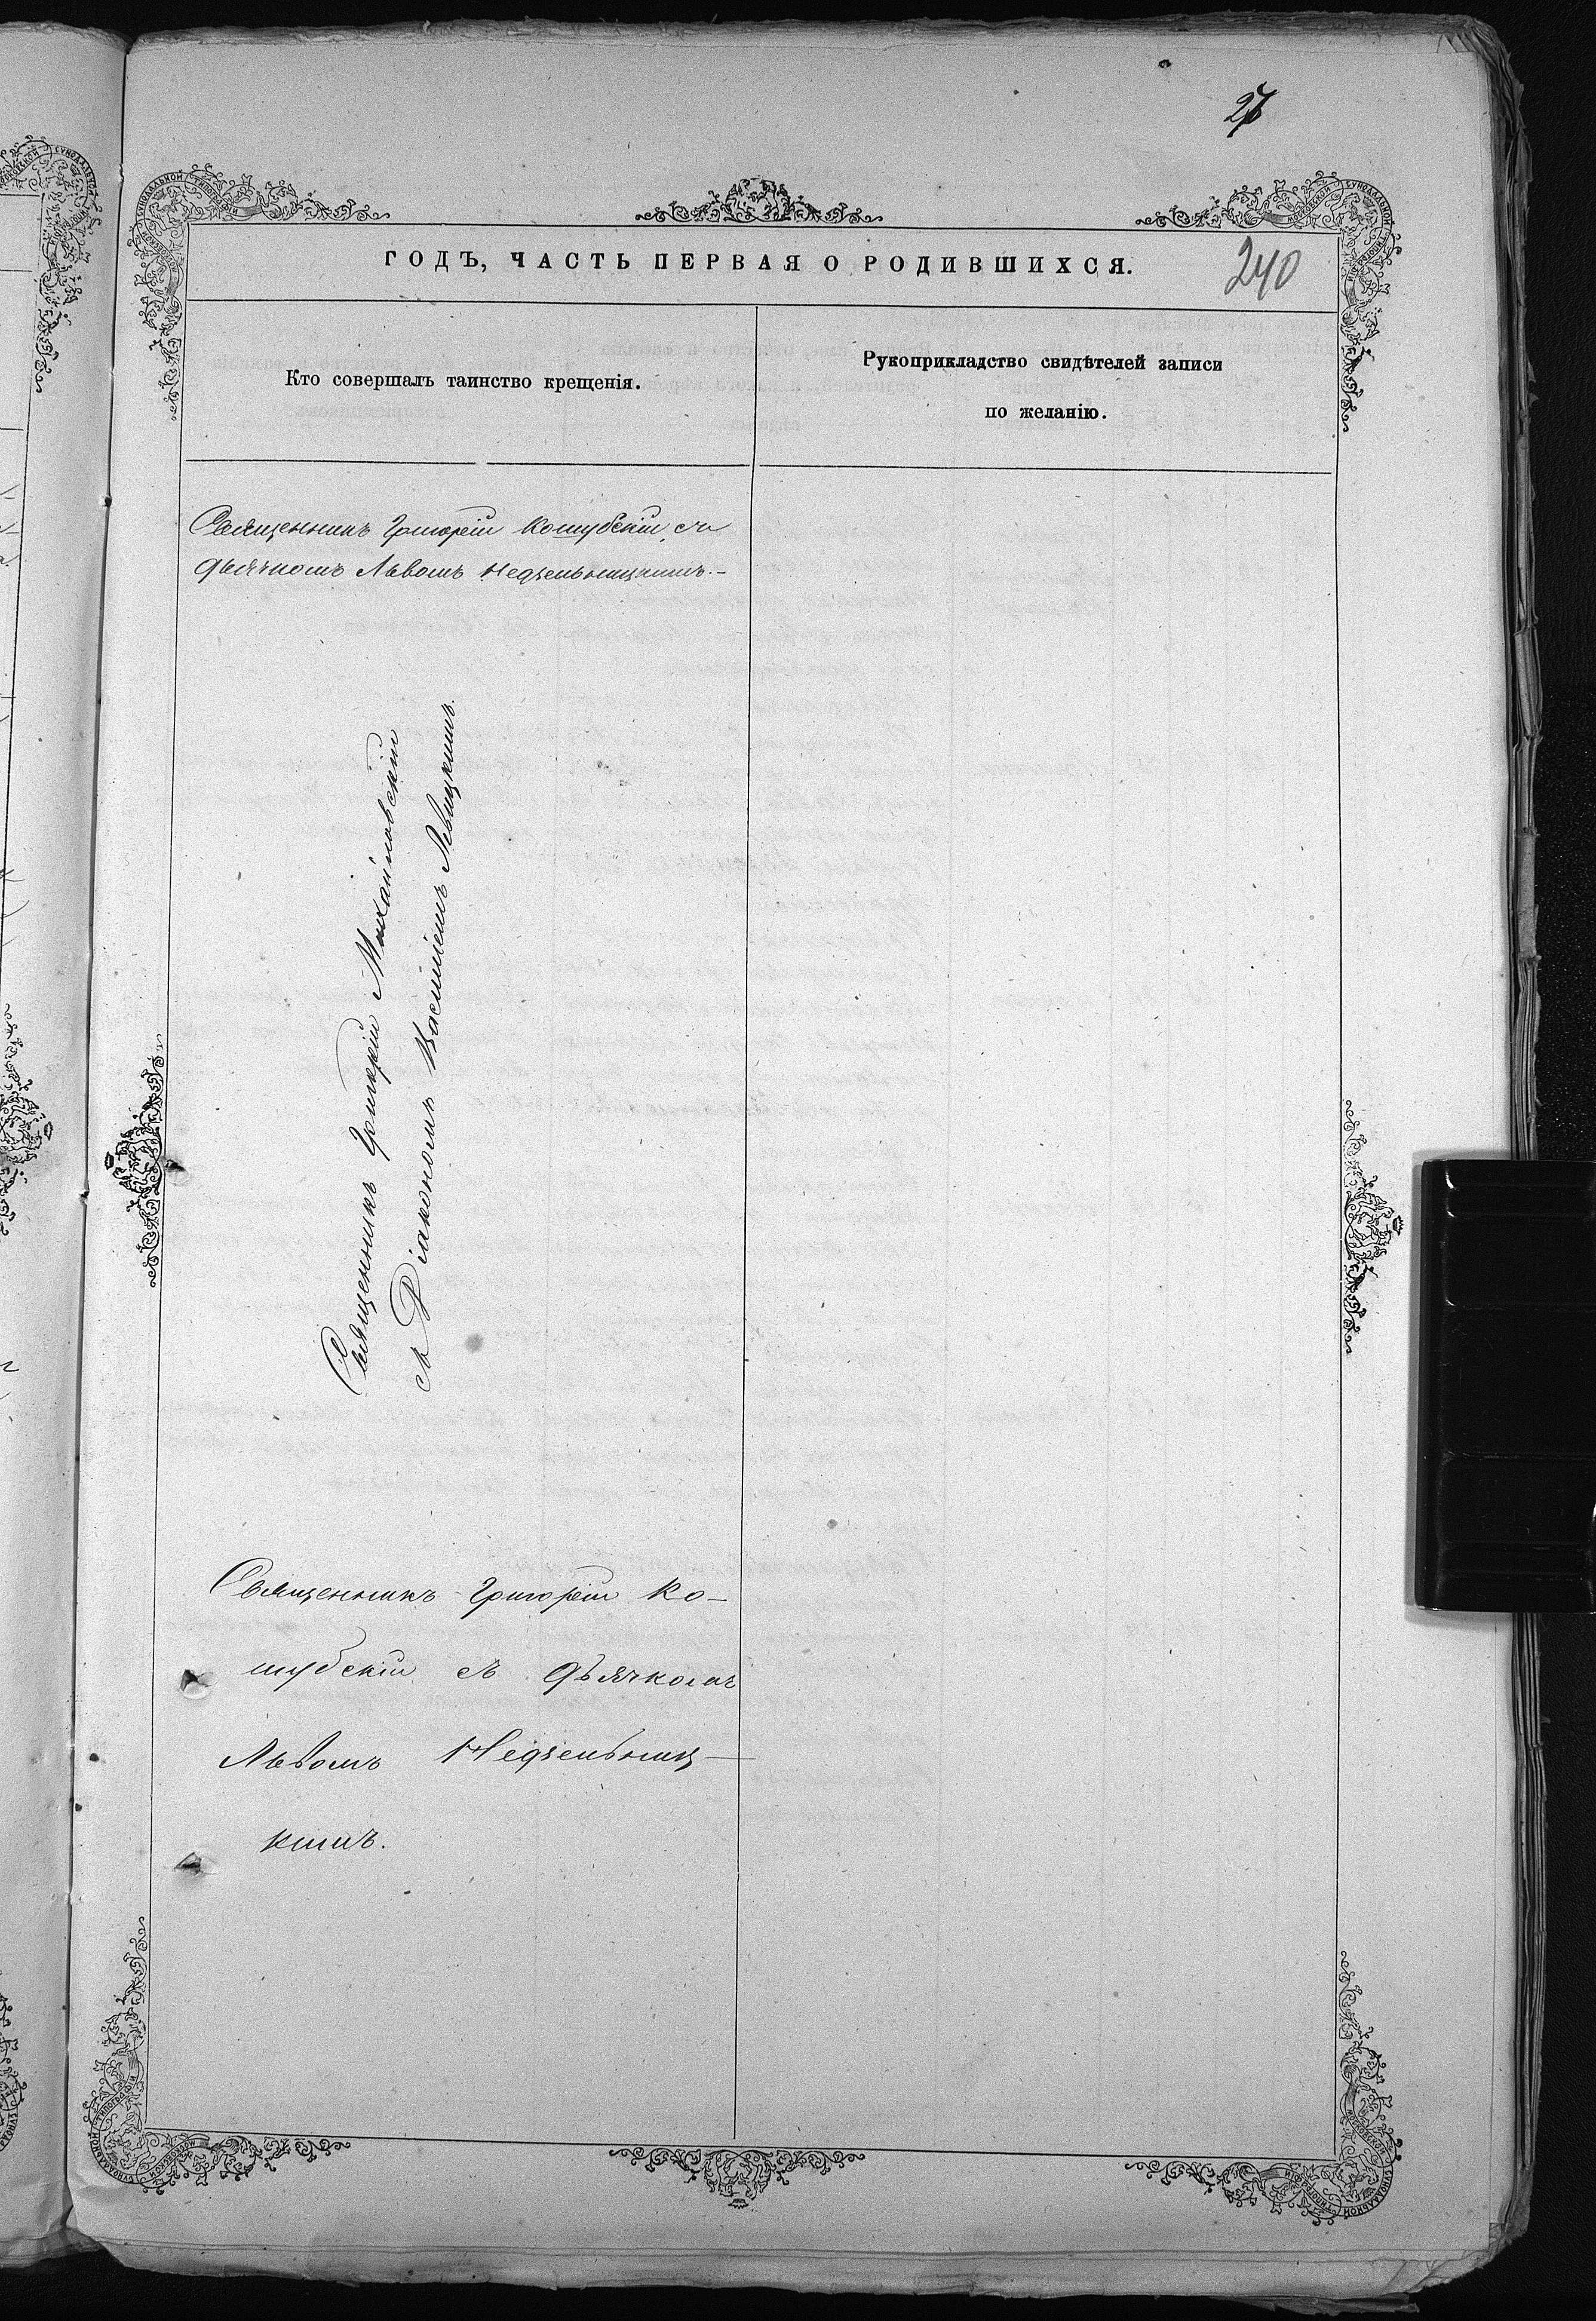 27
ГОДЪ, ЧАСТЬ ПЕРВАЯ О РОДИВШИХСЯ.
240
Кто совершалъ таинство крещенія.
Рукоприкладство свидѣтелей записи
по желанію.
Священникъ Григорій Кошубскій съ
дьячкомъ Львомъ Недзельницкимъ.–
Священникъ Григорій Михайловскій
съ Діакономъ Василіемъ Левицкимъ.
Священникъ Григорій Ко-
шубскій съ дьячкомъ
Львомъ Недзельниц-
кимъ.